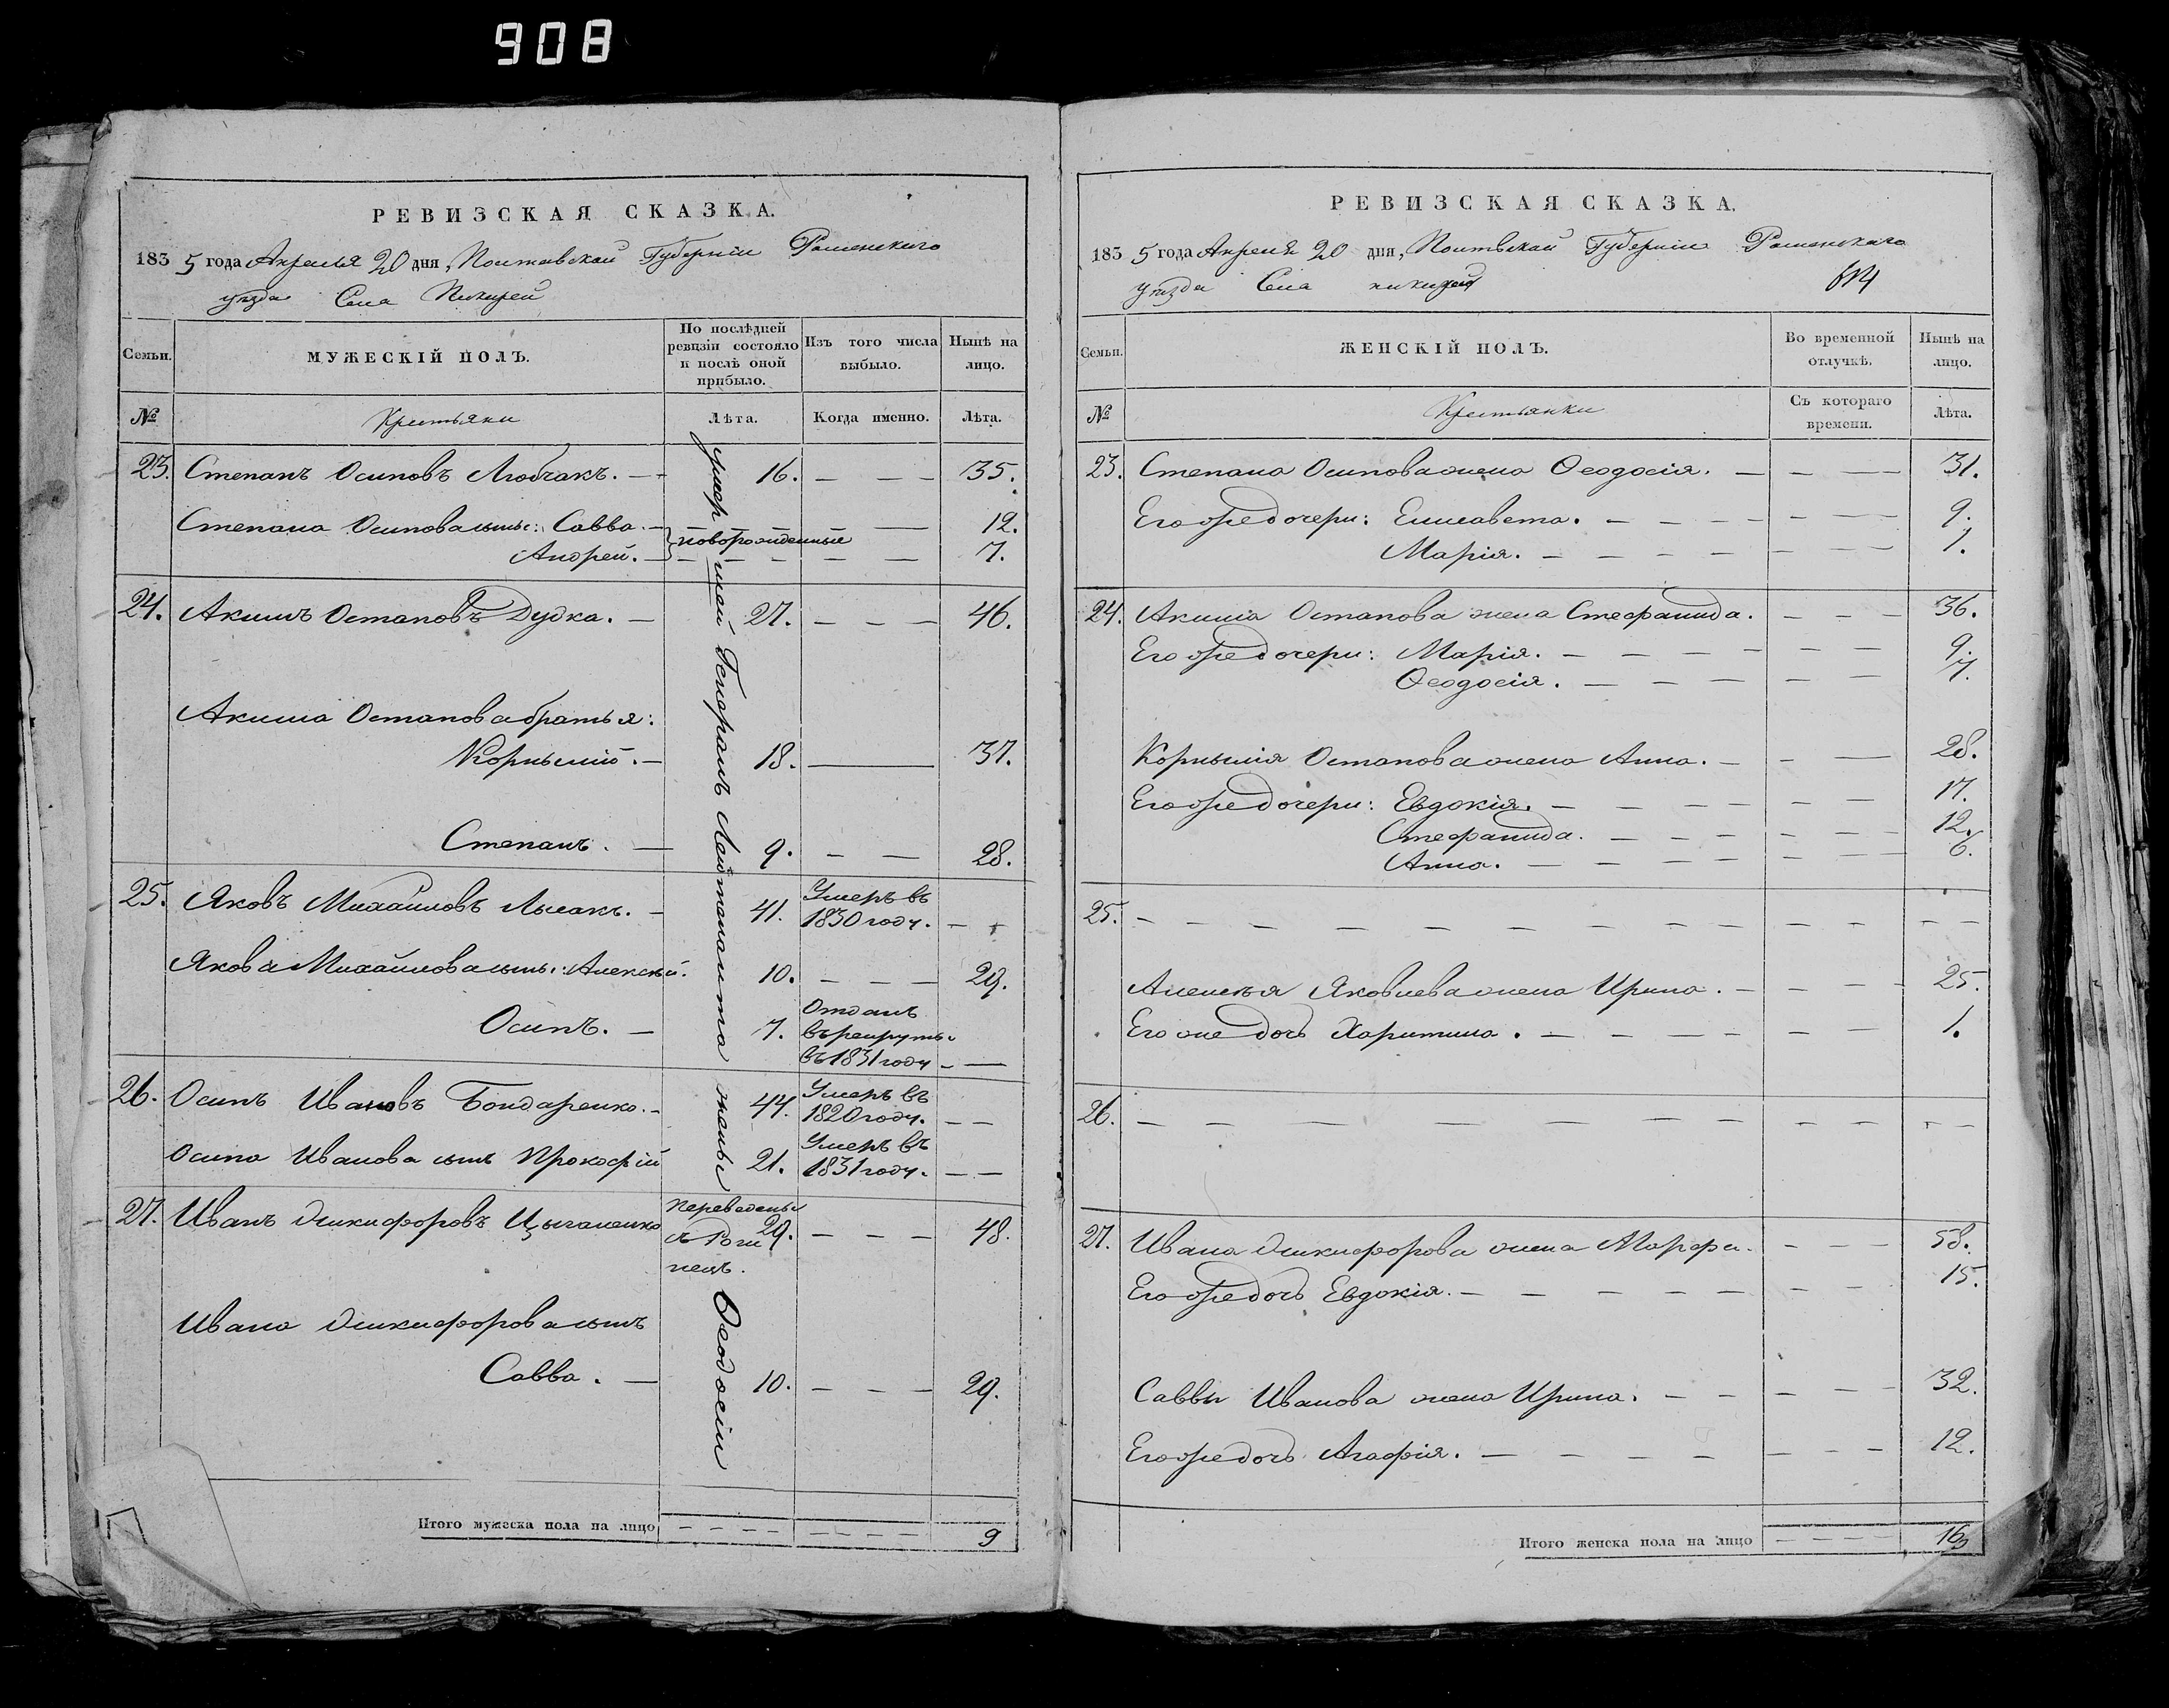 908
РЕВИЗСКАЯ СКАЗКА.
1835 года Апреля 20 дня, Полтавской Губерніи Роменскаго
уѣзда Села Пикарей
Семьи.
МУЖЕСКІЙ ПОЛЪ.
По послѣдней ревизіи состояло и послѣ оной прибыло.
Изъ того числа выбыло.
Нынѣ на лицо.
№
Крестьяни
Лѣта.
Когда именно.
Лѣта.
23. Степанъ Осиповъ Любчакъ. — 16. — — — 35.
Степана Осипова сыны: Савва. — новорожденные — 12.
Андрей. — — — — 7.
24. Акимъ Остаповъ Дудка. — 27. — — — 46.
Акима Остапова братья:
Корнылій. — 18. — 37.
Степанъ. — 9. — — 28.
25. Яковъ Михайловъ Лысакъ. — 41. Умеръ въ 1830 году. — —
Якова Михайлова сыны: Алексѣй. 10. — — — 29.
Осипъ. — 7. Отданъ въ рекруты въ 1831 году — —
26. Осипъ Ивановъ Бондаренко. — 44. Умеръ въ 1820 году. — —
Осипа Иванова сынъ Прокофій 21. Умеръ въ 1831 году. — —
27. Иванъ Никифоровъ Цыганенко Переведены 29. — — — 48.
Ивана Никифорова сынъ
Савва. — 10. — — — 29.
умер шей Генералъ Лейтенанта жены Феодосіи
Итого мужеска пола на лицо — — — — 9
РЕВИЗСКАЯ СКАЗКА.
1835 года Апреля 20 дня, Полтвской Губерніи Роменскаго
уѣзда Села Пикарей
614
Семьи.
ЖЕНСКІЙ ПОЛЪ.
Во временной отлучкѣ.
Нынѣ на лицо.
№
Крестьянки
Съ котораго времени.
Лѣта.
23. Степана Осипова жена Ѳеодосія. — — — 31.
Его же дочери: Елисавета. — — — 9.
Марія. — — — 1.
24. Акима Остапова жена Стефанида. — — — 36.
Его же дочери: Марія. — — — 9.
Ѳеодосія. — — — 7.
Корнылія Остапова жена Анна. — — — 28.
Его же дочери: Евдокія. — — — 17.
Стефанида. — — — 12.
Анна. — — — 6.
25. — — — — — —
Алексѣя Яковлева жена Ирина. — — — 25.
Его же дочь Харитина. — — — 1.
26. — — — — — —
27. Ивана Никифорова жена Марфа. — — — 58.
Его же дочь Евдокія. — — — 15.
Саввы Иванова жена Ирина. — — — 32.
Его же дочь Агафія. — — — 12.
Итого женска пола на лицо — — — 16